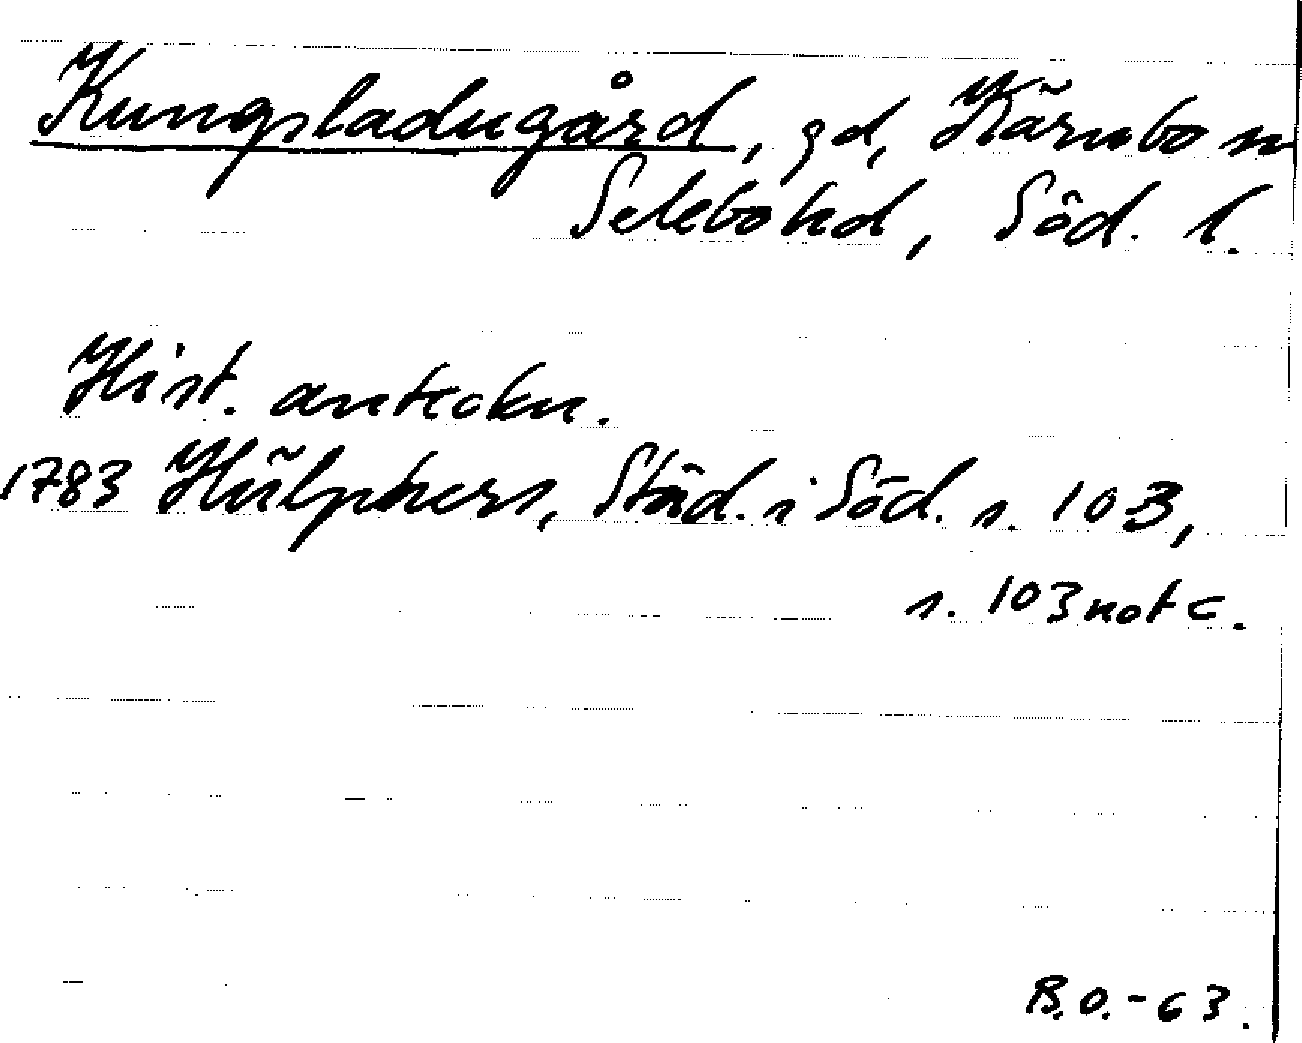 Kungsladugård, gd, Kärnbo sn
Selebo hd, Söd. l.
Hist. anteckn.
1783 Hülphers, Städ. i Söd. s. 103,
s. 103 not c.
B.O.-63.